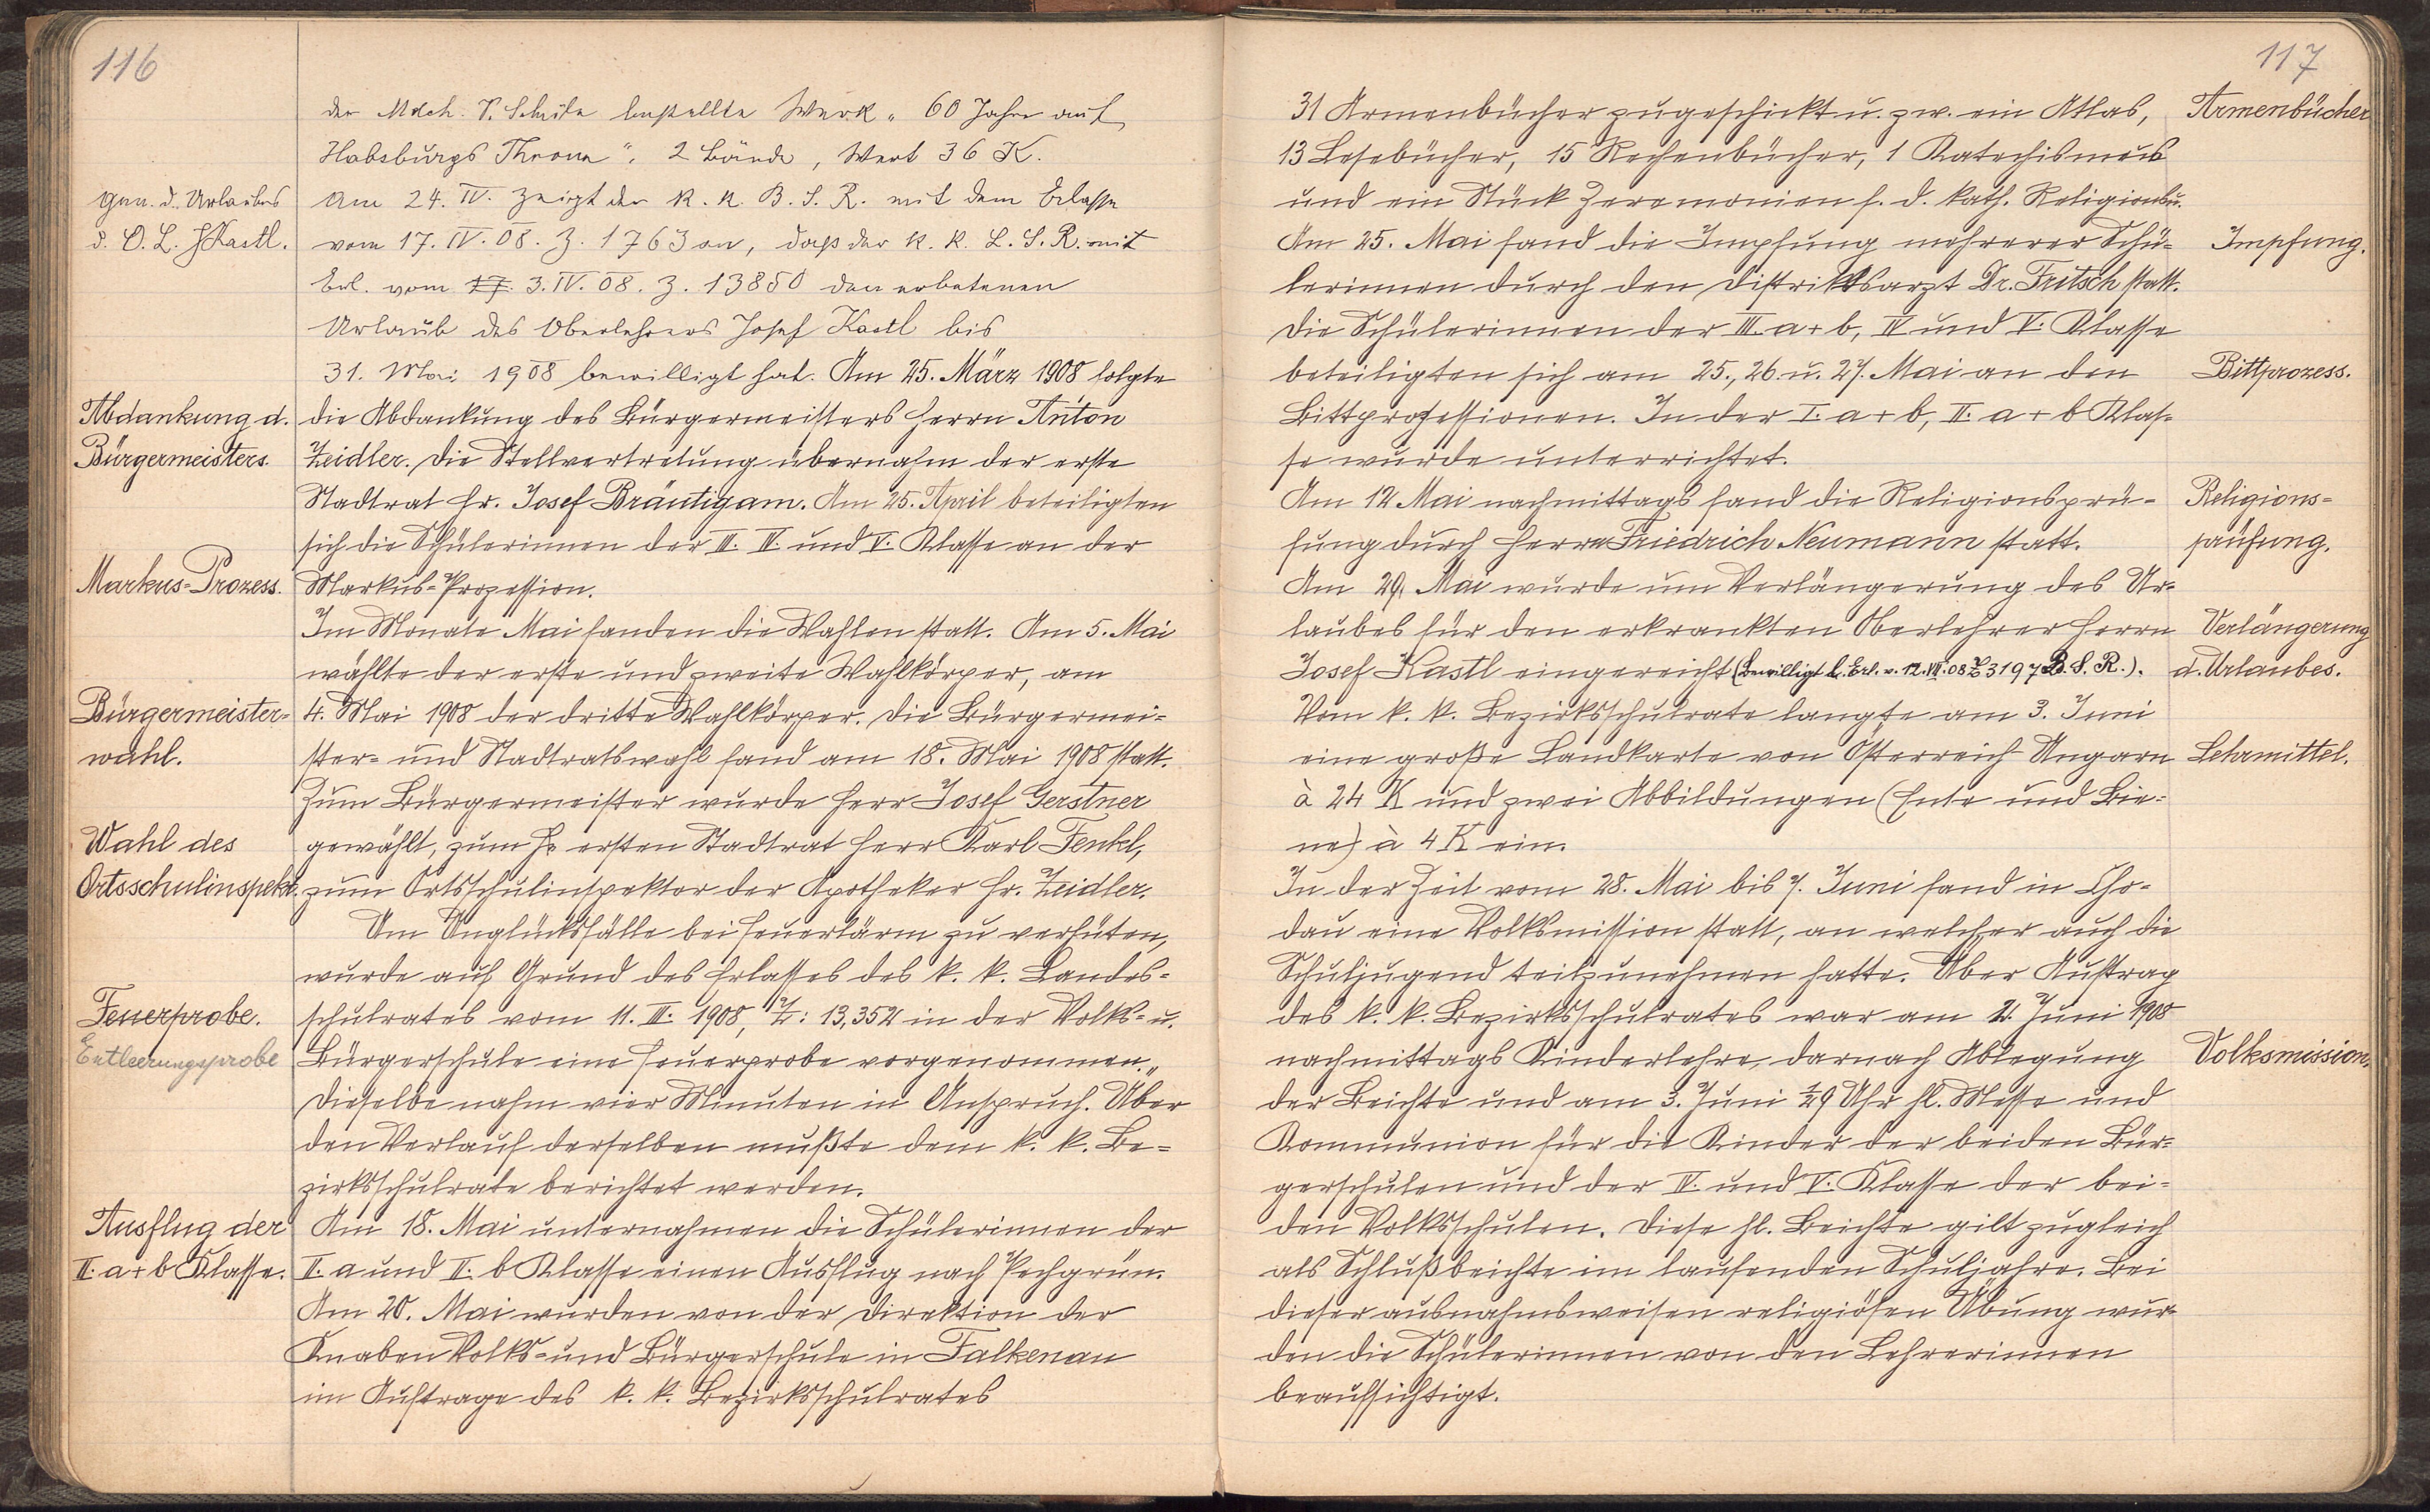 116
der Mdch. V. Schule bestellte Werk „60 Jahre auf
Habsburgs Throne“, 2 Bände, Wert 36 K.
Gen. d. Urlaubes
d. O. L. J. Kastl.
Am 24. IV. zeigt der k. k. B. S. R. mit dem Erlasse
vom 17. IV. 08. Z. 1763 an, daß der k. k. L. S. R. mit
Erl. vom 17. 3. IV. 08. Z. 13850 den erbetenen
Urlaub des Oberlehrers Josef Kastl bis
31. Mai 1908 bewilligt hat. Am 25. März 1908 folgte
Abdankung d.
Bürgermeisters.
die Abdankung des Bürgermeisters Herrn Anton
Zeidler. Die Stellvertretung übernahm der erste
Stadtrat Hr. Josef Bräutigam. Am 25. April beteiligten
sich die Schülerinnen der III. IV. und V. Klasse an der
Markus-Prozess.
Markus-Prozession.
Im Monate Mai fanden die Wahlen statt. Am 5. Mai
wählte der erste und zweite Wahlkörper, am
Bürgermeister-
wahl.
4. Mai 1908 der dritte Wahlkörper. Die Bürgermei-
ster- und Stadtratswahl fand am 18. Mai 1908 statt.
Zum Bürgermeister wurde Herr Josef Gerstner
Wahl des
Ortsschulinspekt.
gewählt, zum ersten Stadtrat Herr Karl Fenkl,
zum Ortsschulinspektor der Apotheker Hr. Zeidler.
Um Unglücksfälle bei Feuerlärm zu verhüten,
wurde auf Grund des Erlasses des k. k. Landes-
Feuerprobe.
Entleerungsprobe
schulrates vom 11. III. 1908, Z: 13,352 in der Volks- u.
Bürgerschule eine Feuerprobe vorgenommen.
Dieselbe nahm vier Minuten in Anspruch. Über
den Verlauf derselben mußte dem k. k. Be-
zirksschulrate berichtet werden.
Ausflug der
II. a + b Klasse.
Am 18. Mai unternahmen die Schülerinnen der
II. a und II. b Klasse einen Ausflug nach Pechgrün.
Am 20. Mai wurden von der Direktion der
Knaben Volks- und Bürgerschule in Falkenau
im Auftrage des k. k. Bezirksschulrates
117
31 Armenbücher zugeschickt u. zw. ein Atlas,
Armenbücher
13 Lesebücher, 15 Rechenbücher, 1 Katechismus
und ein Stück Zeremonien f. d. kath. Religionsu.
Am 25. Mai fand die Impfung mehrerer Schü-
Impfung.
lerinnen durch den Distriktsarzt Dr. Fritsch statt.
Die Schülerinnen der III. a + b, IV. und V. Klasse
beteiligten sich am 25., 26. u. 27. Mai an den
Bittprozess.
Bittprozessionen. In der I. a + b, II. a + b Klas-
se wurde unterrichtet.
Am 12 Mai nachmittags fand die Religionsprü-
Religions-
fung durch Herrn Friedrich Neumann statt.
prüfung.
Am 29. Mai wurde um Verlängerung des Ur-
laubes für den erkrankten Oberlehrer Herrn
Verlängerung
Josef Kastl eingereicht (Bewilligt l. Erl. v. 12. VII. 08 Z 3197 B. S. R.).
d. Urlaubes.
Vom k. k. Bezirksschulrate langte am 3. Juni
eine große Landkarte von Österreich Ungarn
Lehrmittel.
à 24 K und zwei Abbildungen (Ente und Bie-
ne) à 4 K ein.
In der Zeit vom 28. Mai bis 7. Juni fand in Cho-
dau eine Volksmission statt, an welcher auch die
Schuljugend teilzunehmen hatte. Über Auftrag
des k. k. Bezirksschulrates war am 2. Juni 1908
nachmittags Kinderlehre, darnach Ablegung
Volksmission.
der Beichte und am 3. Juni ½9 Uhr hl. Messe und
Kommunion für die Kinder der beiden Bür-
gerschulen und der IV. und V. Klasse der bei-
den Volksschulen. Diese hl. Beichte gilt zugleich
als Schlußbeichte im laufenden Schuljahre. Bei
dieser ausnahmsweisen religiösen Übung wur-
den die Schülerinnen von den Lehrerinnen
beaufsichtigt.